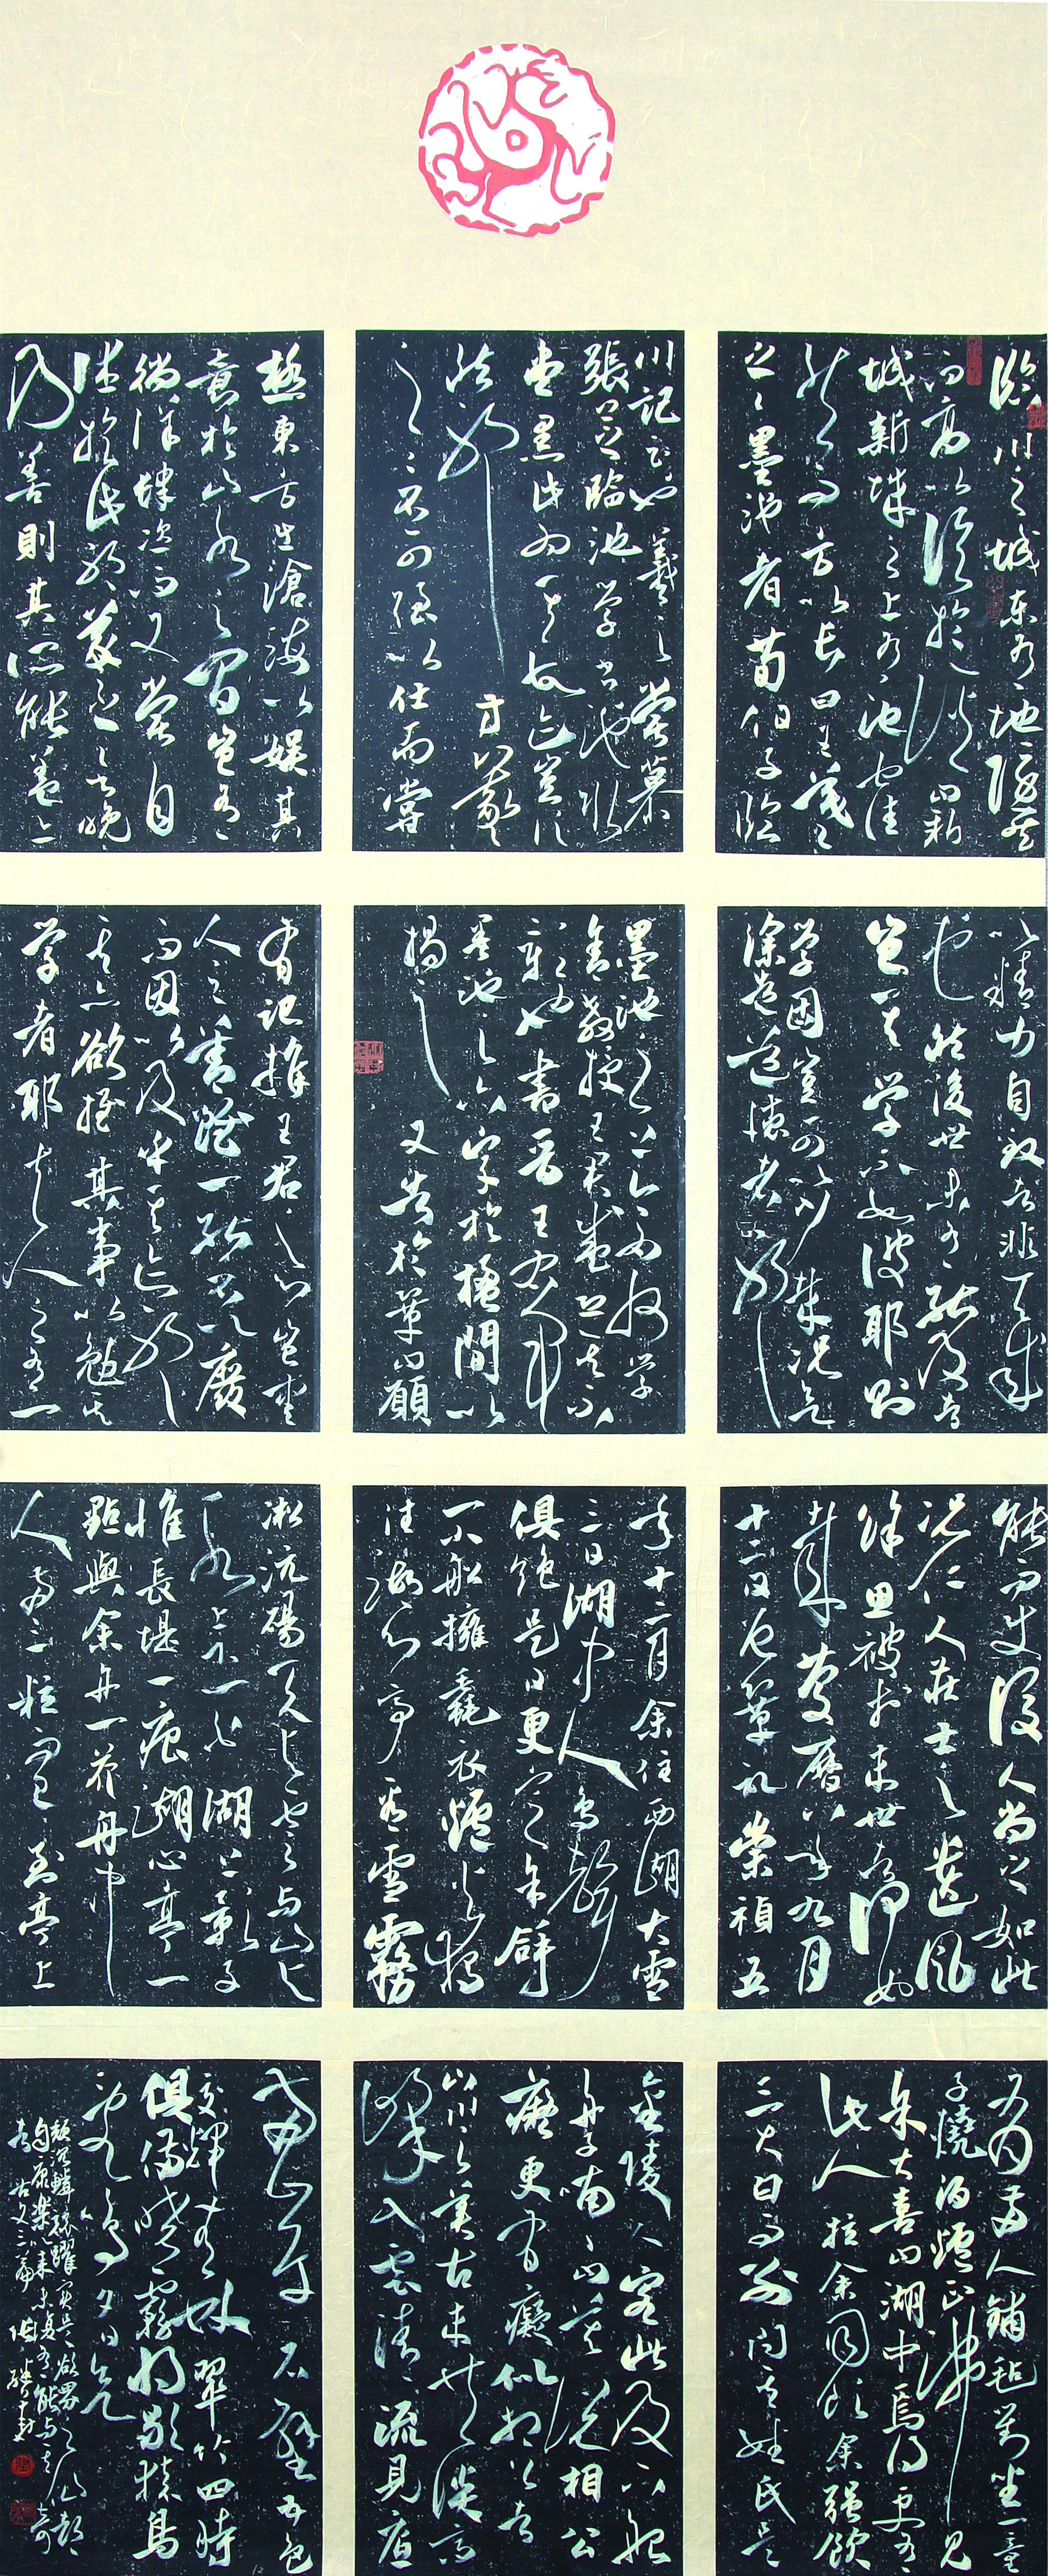 臨川之城東有地隱然
而高以臨於溪曰新
城新城之上有池也洼
然而方以長曰王羲
之之墨池者荀伯子臨
川記云也羲之嘗慕
張芝臨池学書池水
盡黑此為其故迹豈信
然耶 方羲
之之不可強以仕而嘗
極東方出滄海以娛其
意於山水之間豈有
徜徉肆恣而又嘗自
休於此耶羲之之書晚
乃善則其所能蓋亦
以精力自致者非天成
也然後世未有能及者
豈其学不如彼耶則
学固豈可以少哉況欲
深造道德者耶
墨池之上今為州学
舍教授王君盛恐其不
彰也書晉王右軍
墨池之六字於楹間以
揭之又告於鞏曰願
有記推王君之心豈愛
人之善雖一能不以廢
而因以及乎其迹耶
其亦欲推其事以勉其
学者耶夫人之有一
能而使後人尚之如此
況仁人莊士之遺風
餘思被於來世者何如
哉慶曆八年九月
十二日曾鞏記崇禎五
年十二月余住西湖大雪
三日湖中人鳥聲
俱絕是日更定矣余拏
一小船擁毳衣爐火獨
往湖心亭看雪霧
淞沆碭天與雲與山與
水上下一白湖上影子
惟長堤一痕湖心亭一
點與余舟一芥舟中
人兩三粒而已到亭上
有兩人鋪氈對坐一童
子燒酒爐正沸見
余大喜曰湖中焉得更有
此人拉余同飲余強飲
三大白而別問其姓氏是
金陵人客此及下船
舟子喃喃曰莫說相公
癡更有癡似相公者
山川之美古來共談高
峰入雲清流見底
兩岸石壁五色
交輝青林翠竹四時
俱備曉霧將歇猿鳥
亂鳴夕日欲
頹沉鱗競躍實是欲界之仙都
自康樂以來未復有能與其奇
者 古文三篇